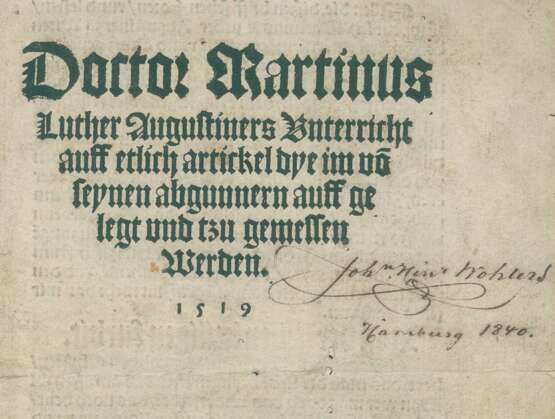 Doctor Martinus
Luther Augustiners Vnterricht
auff etlich artickel dye im võ
seynen abgunnern auff ge
legt vnd tzu gemessen
Werden.
1519
John. Hinr. Wohlers
Hamburg 1840.